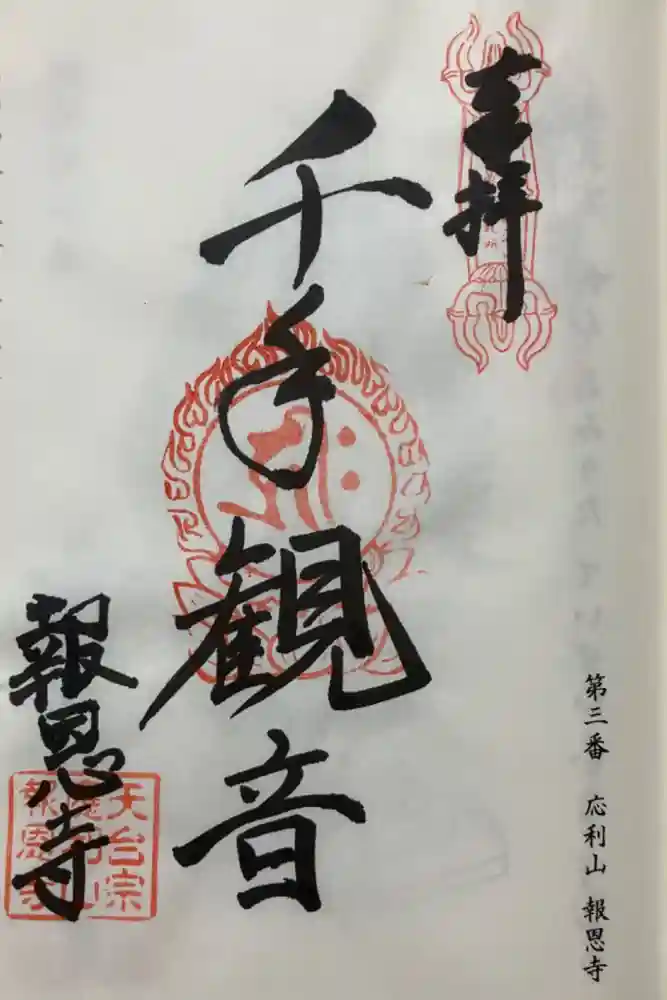 第三番 応利山 報恩寺
奉拝
千手観音
報恩寺
天台宗
報恩寺